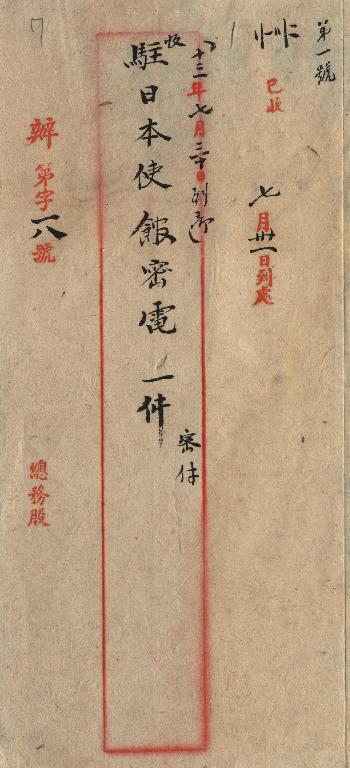 第一號
已收
七月卅一日到處
十三年七月三十日到部
收駐日本使館密電一件
密件
辦第字一八號
總務股